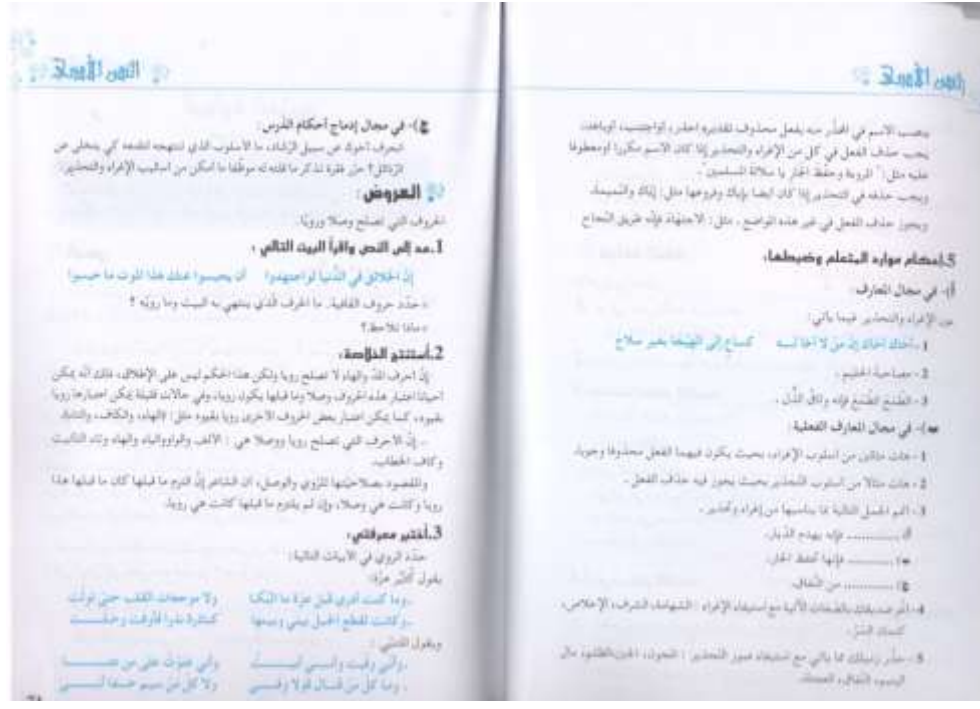 النص الأدبي
ينصب الاسم في المحذر منه بفعل محذوف تقديره احذر، أو اجتنب، أو باعد.
يجب حذف الفعل في كل من الإغراء والتحذير إذا كان الاسم مكررا أو معطوفا
عليه مثل: " المروءة وحفظ الجار يا سلالة المسلمين".
ويجب حذفه في التحذير إذا كان أيضا بإياك وفروعها مثل: إيّاك والنّميمة.
ويجوز حذف الفعل في غير هذه المواضع، مثل: الاجتهاد فإنّه طريق النّجاح
3.إحكام موارد المتعلم وضبطها:
أ)- في مجال المعارف:
عين الإغراء والتحذير فيما يأتي:
1 - أخاك أخاك إنّ من لا أخا لـه كساع إلى الهيجا بغير سلاح
2 - مصاحبة الحليم.
3 - الطّمع الطّمع فإنه وثاق الذّل.
ب)- في مجال المعارف الفعلية:
1 - هات مثالين من أسلوب الإغراء، بحيث يكون فيهما الفعل محذوفا وجوبا.
2 - هات مثالا من أسلوب التحذير بحيث يجوز فيه حذف الفعل.
3 - أتم الجمل التالية بما يناسبها من إغراء وتحذير.
أ) ............ فإنه يهدم الدّيار.
ب) ............ فإنها تحفظ الجار.
ج) ............ من النّفاق.
4- أغر صديقك بالصفات الآتية مع استيفاء الإغراء: الشهامة، الشرف، الإخلاص،
كتمان السّرّ.
5 - حذّر زميلك مما يأتي مع استيفاء صور التّحذير: التهور، الجبن، الظلم، مال
اليتيم، النّفاق،
النص الأدبي
ج)- في مجال إدماج أحكام الدّرس:
انحرف أخوك عن سبيل الرّشاد، ما الأسلوب الذي تنتهجه لنصحه كي يتخلى عن
الرّذائل؟ حرّر فقرة تذكر ما قلته له موظّفا ما أمكن من أساليب الإغراء والتحذير.
العروض:
الحروف التي تصلح وصلا ورويّا.
1.عد إلى النص واقرأ البيت التالي:
إنّ الخلائق في الدّنيا لو اجتهدوا أن يحبسوا عنك هذا الموت ما حبسوا
حدّد حروف القافية. ما الحرف الّذي ينتهي به البيت وما رويّه؟
ماذا تلاحظ؟
2.أستنتج الخلاصة:
إنّ أحرف المدّ والهاء لا تصلح رويا ولكن هذا الحكم ليس على الإطلاق، ذلك أنّه يمكن
أحيانا اعتبار هذه الحروف وصلا وما قبلها يكون رويا، وفي حالات قليلة يمكن اعتبارها رويا
بقيود، كما يمكن اعتبار بعض الحروف الأخرى رويا بقيود مثل: الهاء، والكاف، والتاء.
- إنّ الأحرف التي تصلح رويا ووصلا هي: الألف والواو والياء والهاء وتاء التأنيث
وكاف الخطاب.
والمقصود بصلاحيتها للرّوي والوصل، أن الشاعر إنّ التزم ما قبلها كان ما قبلها هذا
رويا وكانت هي وصلا، وإن لم يلتزم ما قبلها كانت هي رويا.
3.أختبر معرفتي:
حدّد الروي في الأبيات التالية:
يقول كُثيّر عزّة:
وما كنت أدري قبل عزة ما البُكا ولا موجعات القلب حتى تولّت
وكانت لقطع الحبل بيني وبينها كناذرة نذرا فأوفت وحلّـــت
ويقول المتنبي:
وأنّي وفيت وأنــي أبيــــت وأني عتوت على من عتــــا
وما كلّ من قــال قولا وفــى ولا كل من سيم خسفا أبــــى